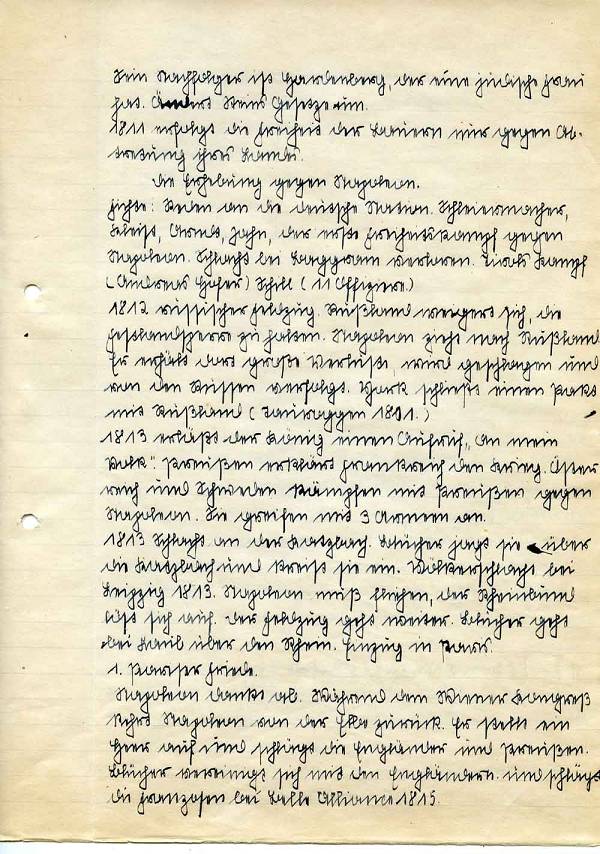 Sein Nachfolger ist Hardenberg, der eine jüdische Frau
hat. Ändert Steins Gesetze um.
1811 erfolgt die Freiheit der Bauern nur gegen Ab-
tretung ihres Landes.
Die Erhebung gegen Napoleon.
Fichte: Reden an die deutsche Nation. Schleiermacher,
Kleist, Arndt, Jahn, der erste Freiheitskampf gegen
Napoleon. Schlacht bei Waggram verloren. Tirols Kampf
(Andreas Hofer) Schill (11 Offiziere.)
1812 russischer Feldzug. Rußland weigert sich, die
Festlandsperre zu halten. Napoleon zieht nach Rußland
Er erhält dort große Verluste, wird geschlagen und
von den Russen verfolgt. York schließt einen Pakt
mit Rußland (Tauroggen 1801.)
1813 erläßt der König einen Aufruf, „An mein
Volk". Preußen erklärt Frankreich den Krieg. Öster
reich und Schweden kämpfen mit Preußen gegen
Napoleon. Sie greifen mit 3 Armeen an.
1813 Schlacht an der Katzbach. Blücher jagt sie über
die Katzbach und kreist sie ein. Völkerschlacht bei
Leipzig 1813. Napoleon muß fliehen, der Rheinbund
löst sich auf. Der Feldzug geht weiter. Blücher geht
bei Kaub über den Rhein. Einzug in Paris.
1. Pariser Friede.
Napoleon dankt ab. Während dem Wiener Kongreß
kehrt Napoleon von der Elba zurück. Er stellt ein
Heer auf und schlägt die Engländer und Preußen.
Blücher vereinigt sich mit den Engländern und schlägt
die Franzosen bei Belle Alliance 1815.